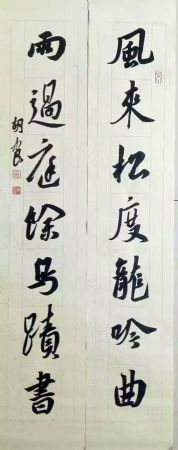 風來松度龍吟曲
雨過庭餘鳥蹟書